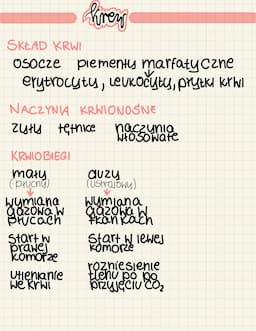 krew
SKŁAD KRWI
osocze elementy marfatyczne
erytrocyty, leukocyty, płytki krwi
NACZYNIA KRWIONOŚNE
żyły tętnice naczynia
włosowate
KRWIOBIEGI
mały duży
(płucny) (ustrojowy)
wymiana wymiana
gazowa w gazowa w
płucach tkankach
start w start w lewej
prawej komorze
komorze
utlenianie rozniesienie
we krwi tlenu po
przyjęciu CO₂